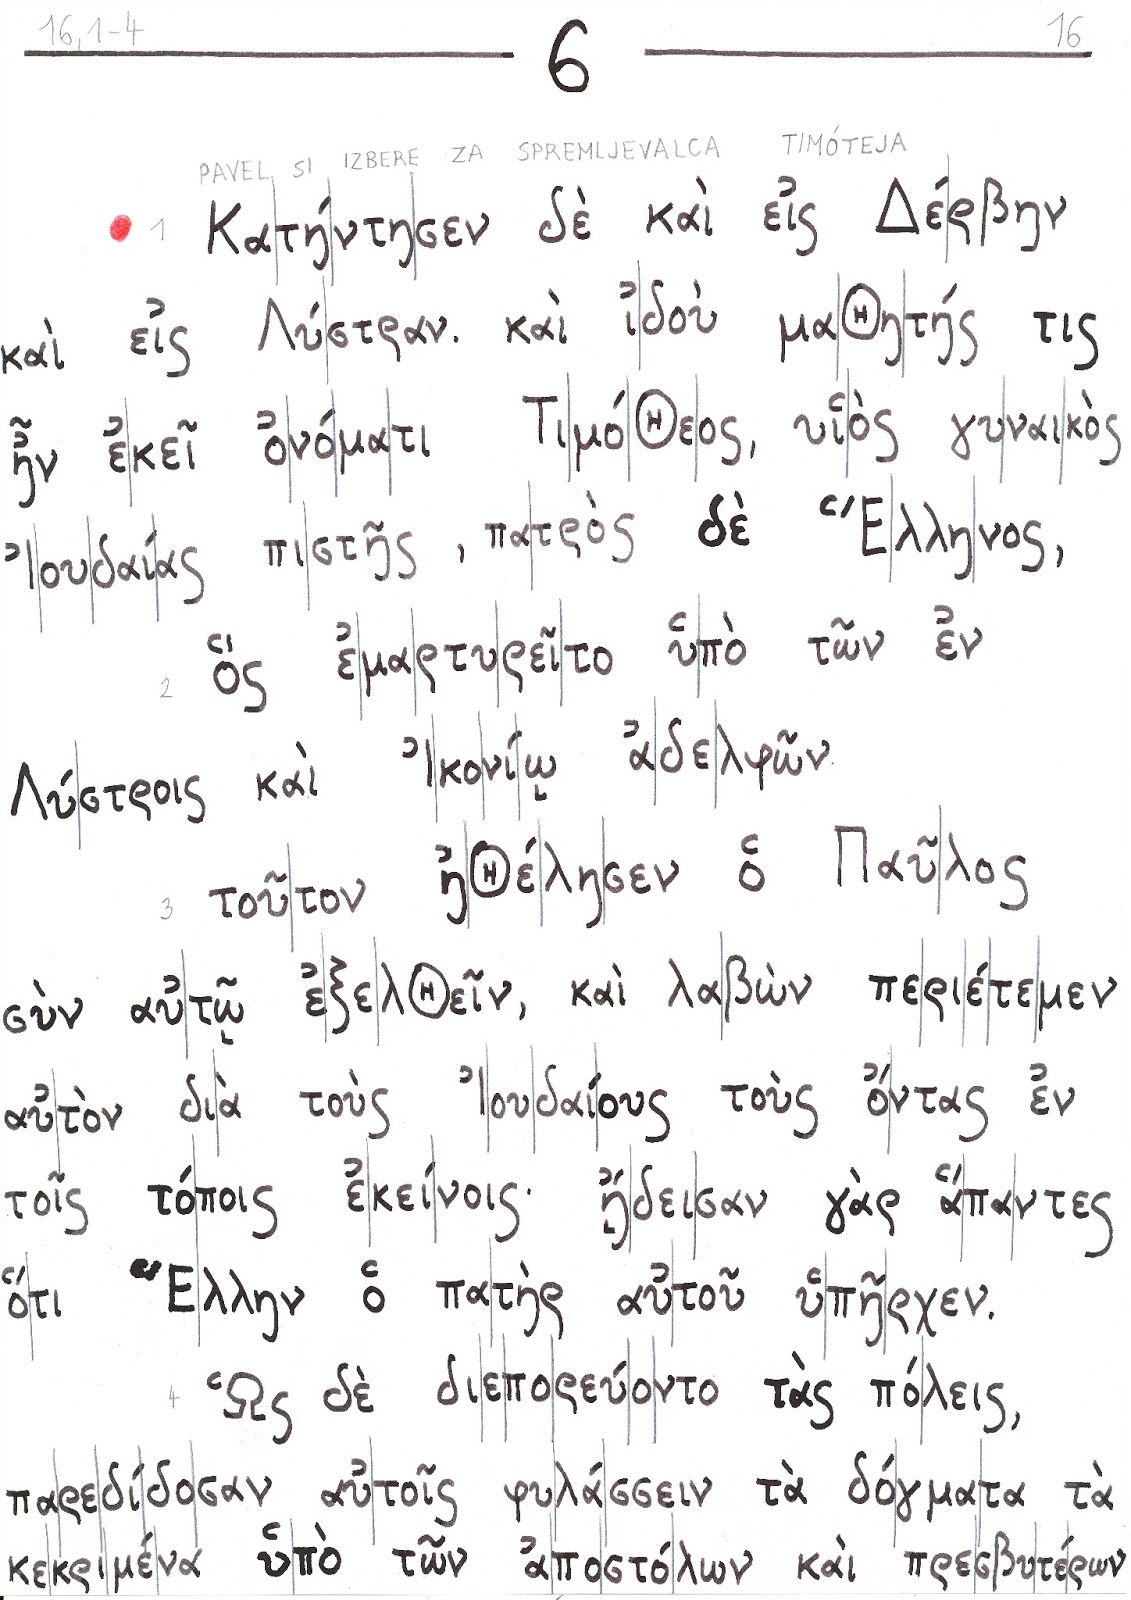 16,1-4 6 16
PAVEL SI IZBERE ZA SPREMLJEVALCA TIMÓTEJA
1 Κατήντησεν δὲ καὶ εἰς Δέρβην
καὶ εἰς Λύστραν. καὶ ἰδοὺ μαθητής τις
ἦν ἐκεῖ ὀνόματι Τιμόθεος, υἱὸς γυναικὸς
Ἰουδαίας πιστῆς, πατρὸς δὲ Ἕλληνος,
2 ὅς ἐμαρτυρεῖτο ὑπὸ τῶν ἐν
Λύστροις καὶ Ἰκονίῳ ἀδελφῶν.
3 τοῦτον ἠθέλησεν ὁ Παῦλος
σὺν αὐτῷ ἐξελθεῖν, καὶ λαβὼν περιέτεμεν
αὐτὸν διὰ τοὺς Ἰουδαίους τοὺς ὄντας ἐν
τοῖς τόποις ἐκείνοις· ᾔδεισαν γὰρ ἅπαντες
ὅτι Ἕλλην ὁ πατὴρ αὐτοῦ ὑπῆρχεν.
4 Ὡς δὲ διεπορεύοντο τὰς πόλεις,
παρεδίδοσαν αὐτοῖς φυλάσσειν τὰ δόγματα τὰ
κεκριμένα ὑπὸ τῶν ἀποστόλων καὶ πρεσβυτέρων